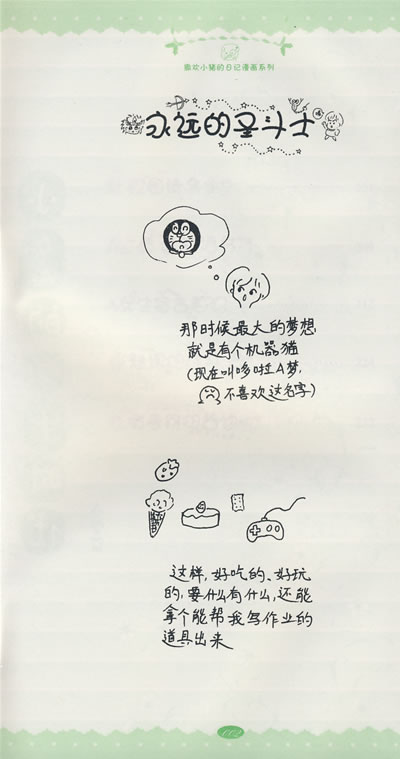 撒欢小猪的日记漫画系列
永远的圣斗士
那时候最大的梦想
就是有个机器猫
(现在叫哆啦A梦,
不喜欢这名字)
这样,好吃的、好玩
的,要什么有什么,还能
拿个能帮我写作业的
道具出来
112